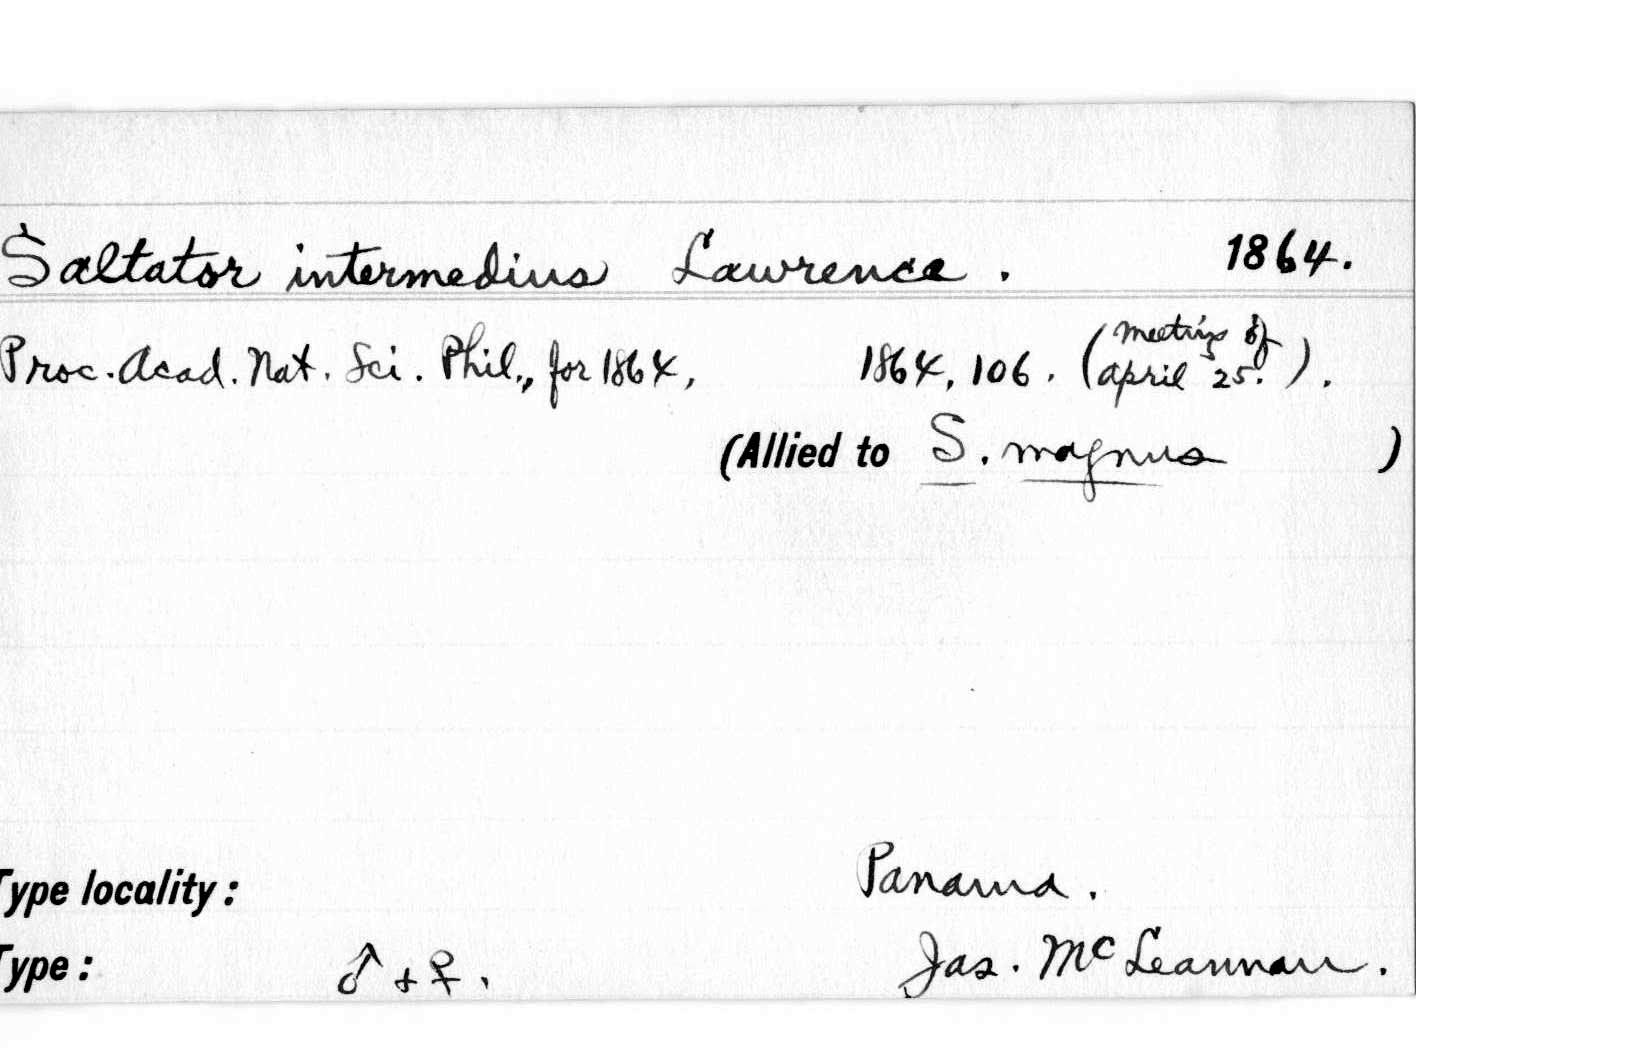 Saltator intermedius Lawrence. 1864.
Proc. Acad. Nat. Sci. Phil., for 1864, 1864, 106. (Meeting of
April 25.).
(Allied to S. magnus )
Type locality: Panama.
Type: ♂ + ♀. Jas. McLeannan.